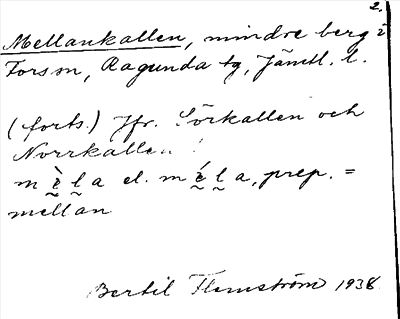 2.
Mellankallen, mindre berg i
Forsm, Ragunda tg, Jämtl. l.
(forts.) Jfr. Sörkallen och
Norrkallen
m ɛ̀ l a el. m ɛ́ l a, prep. =
mellan
Bertil Flemström 1938